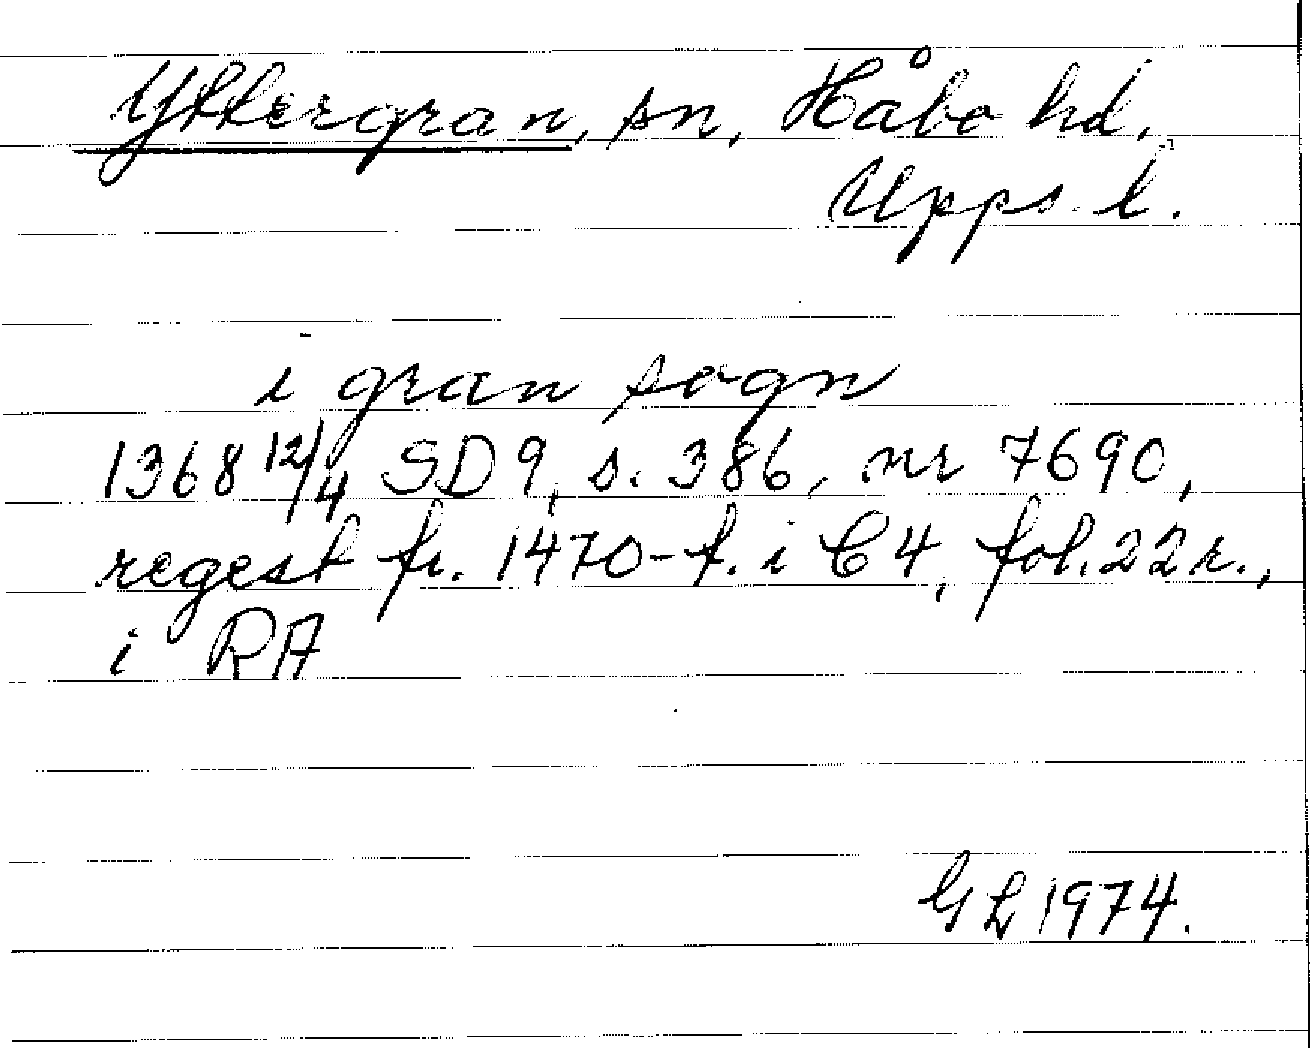 Yttergran, sn, Håbo hd,
Upps. l.
i gran sogn
1368 12/4 SD 9, s. 386, nr 7690,
regest fr. 1470-t. i C 4, fol. 22 r.,
i RA
GL 1974.